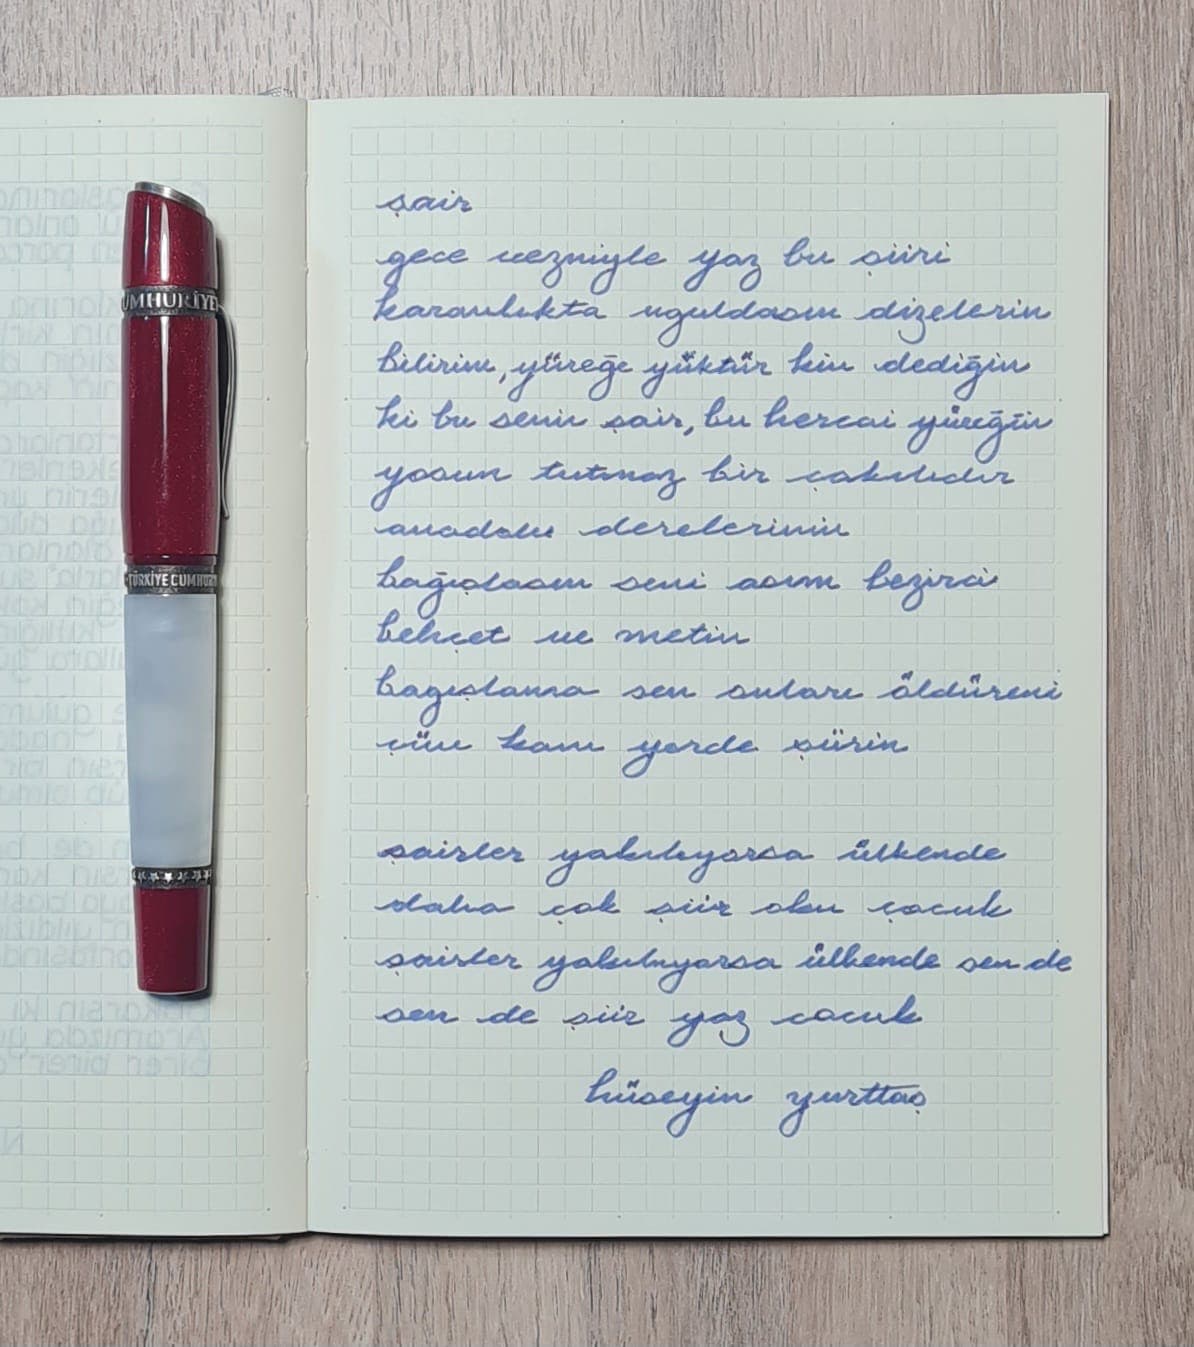 UMHURİYE
TÜRKİYE CUMHURİ
şair
gece vezniyle yaz bu şiiri
karanlıkta uğuldasın dizelerin
bilirim, yüreğe yüktür kin dediğin
ki bu senin şair, bu hercai yüreğin
yosun tutmaz bir çakılıdır
anadolu derelerinin
bağışlasın seni asım bezirci
behçet ve metin
bağışlama sen onları öldüreni
çünü kanı yerde şiirin
şairler yakılıyorsa ülkende
daha çok şiir oku çocuk
şairler yakılıyorsa ülkende sen de
sen de şiir yaz çocuk
hüseyin yurttaş